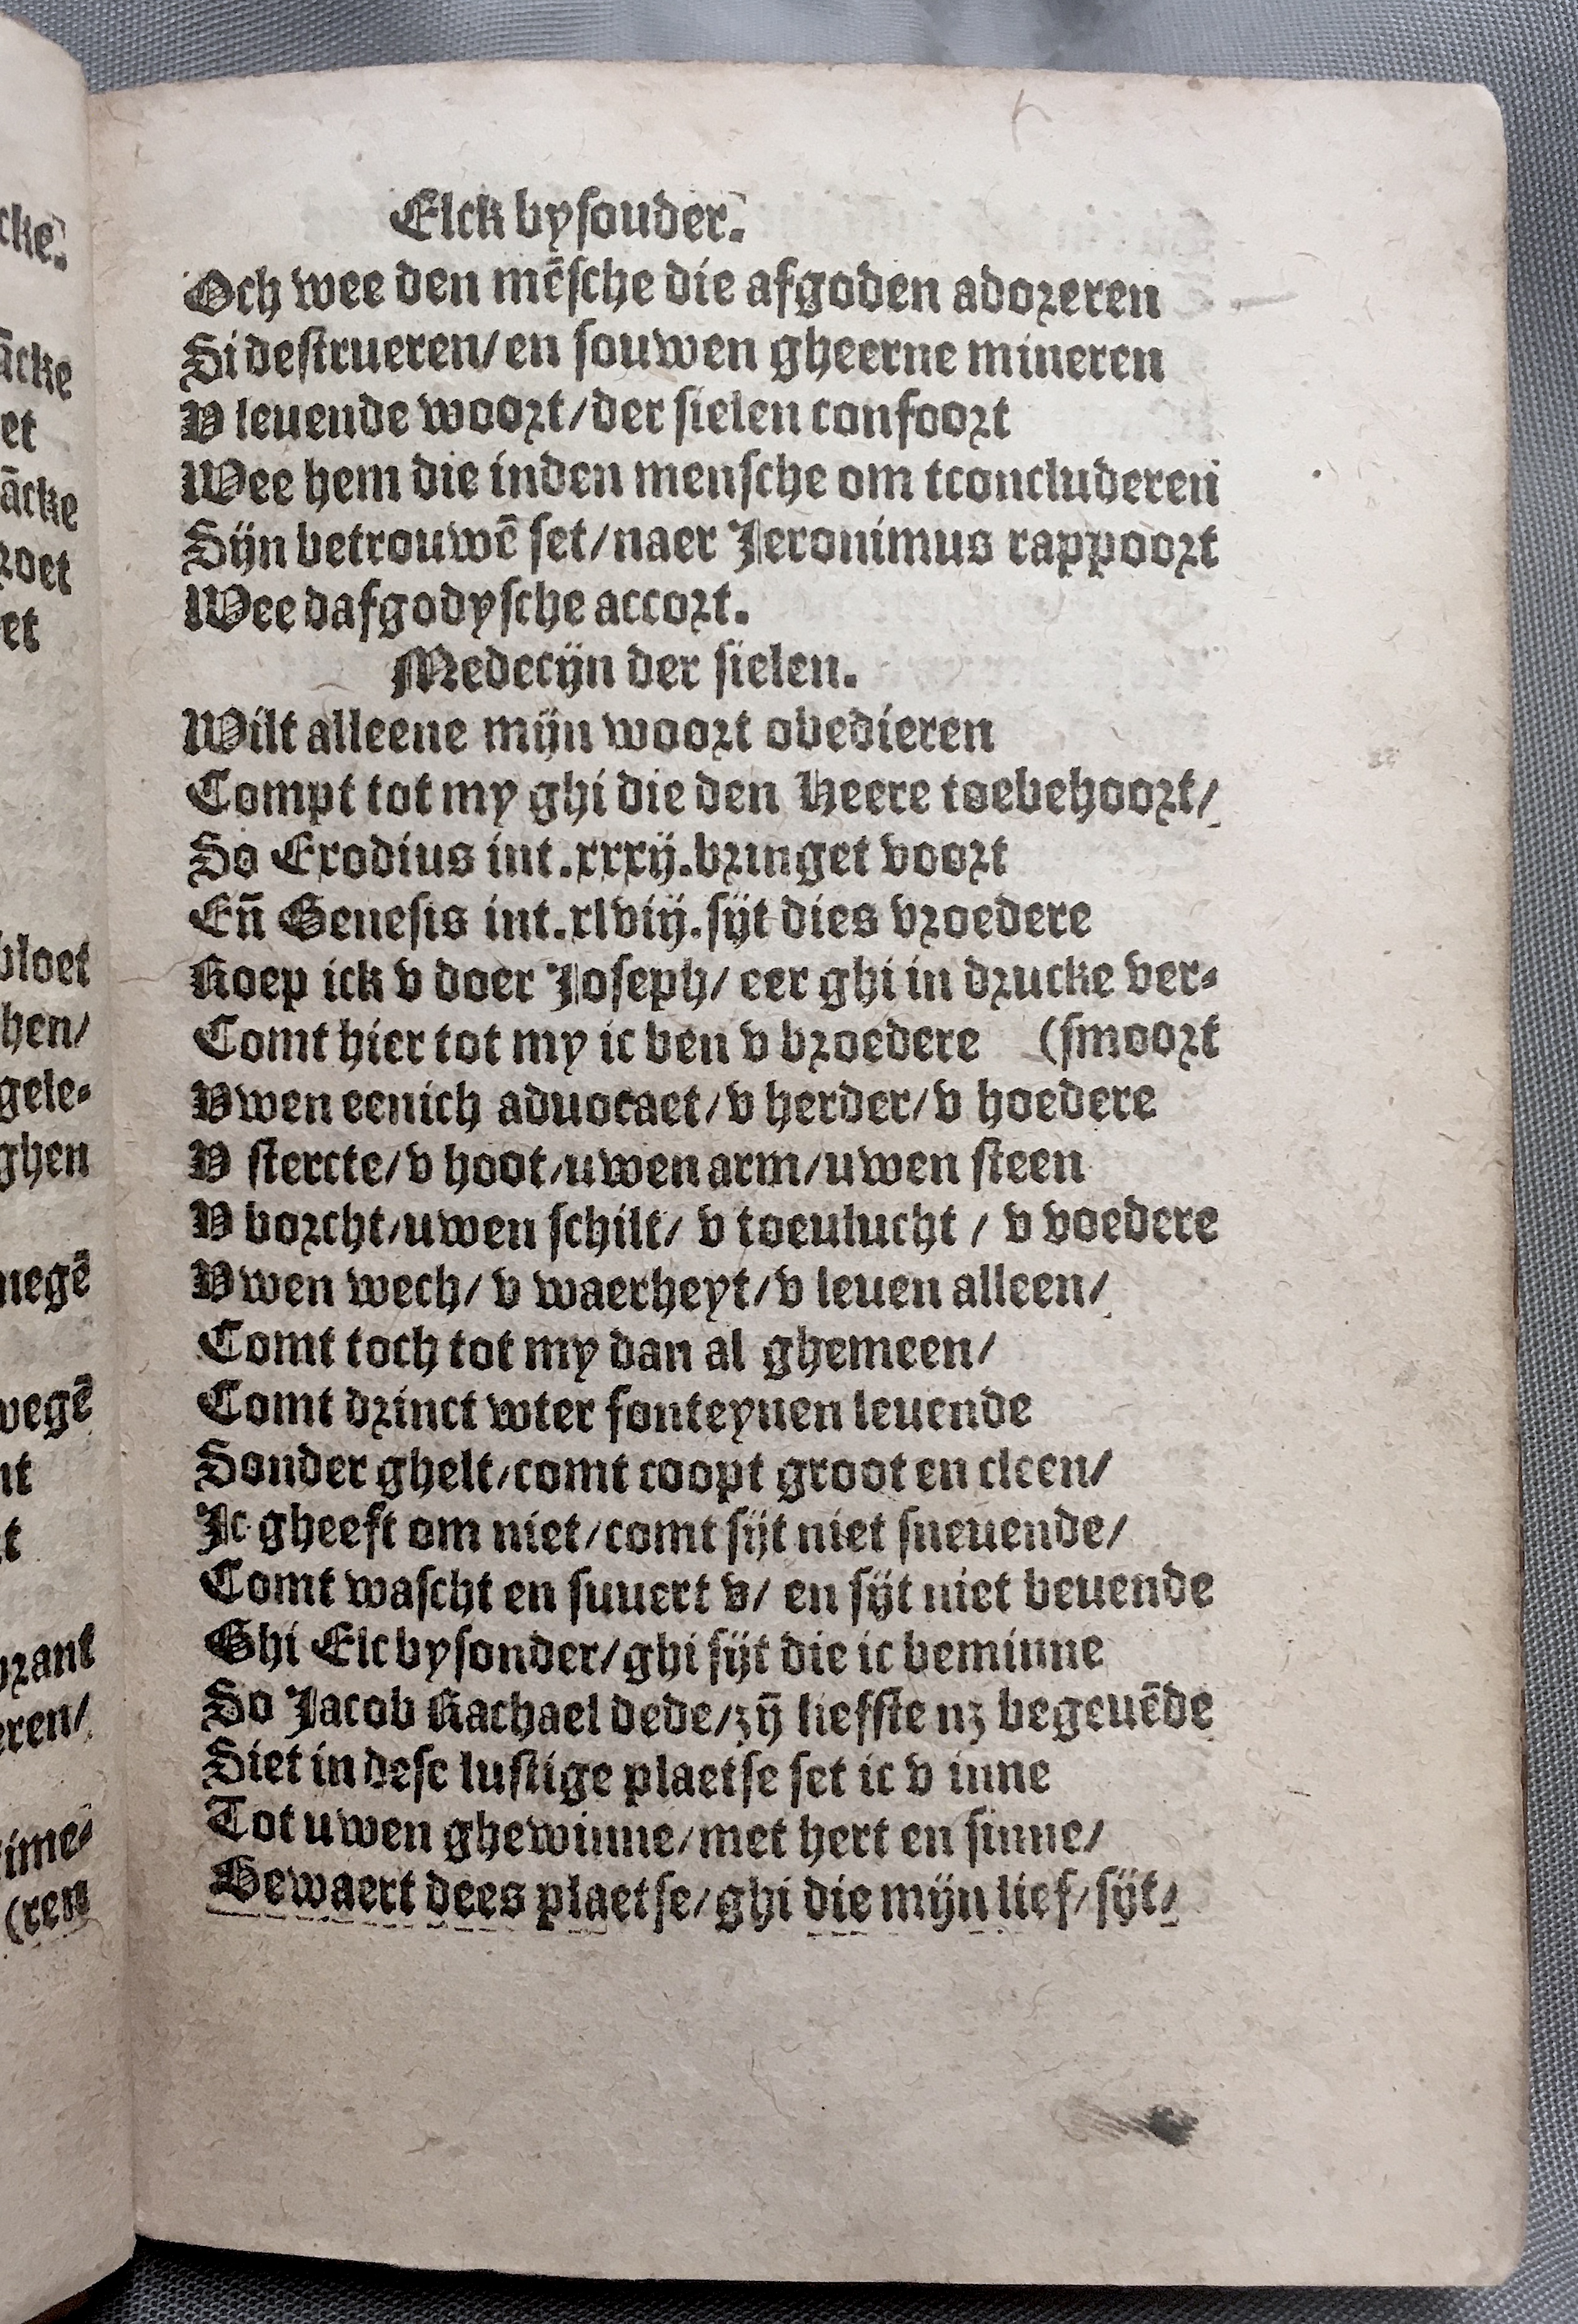 Elck bysouder.
Och wee den mēsche die afgoden adoreren
Si destrueren/en souwen gheerne mineren
V leuende woort/der sielen confoort
Wee hem die inden mensche om tconcluderen
Sijn betrouwē set/naer Jeronimus rappoort
Wee dafgodysche accort.
Medecijn der sielen.
Wilt alleene mijn woort obedieren
Compt tot my ghi die den Heere toebehoort/
So Exodius int.xxxij.bringet voort
Eñ Genesis int.xlviij.sijt dies vroedere
Roep ick v doer Joseph/ eer ghi in drucke ver-
Comt hier tot my ic ben v broedere (smoort
Vwen eenich aduocaet/v herder/v hoedere
V stercte/v hoot/uwen arm/uwen steen
V borcht/uwen schilt/ v toeulucht / v voedere
Vwen wech/ v waerheyt/v leuen alleen/
Comt toch tot my dan al ghemeen/
Comt drinct wter fonteynen leuende
Sonder ghelt/comt coopt groot en cleen/
Jc gheeft om niet/comt sijt niet sneuende/
Comt wascht en suuert v/ en sijt niet beuende
Ghi Elc bysonder/ghi sijt die ic beminne
So Jacob Rachael dede/zÿ liefste nz begeuēde
Siet in dese lustige plaetse set ic v inne
Tot uwen ghewinne/met hert en sinne/
Bewaert dees plaetse/ghi die mijn lief/sijt/
cke.
ācke
et
ācke
roet
et
bloet
hen/
gele-
ghen
negē
wegē
nt
t
brant
eren/
ime-
(ren